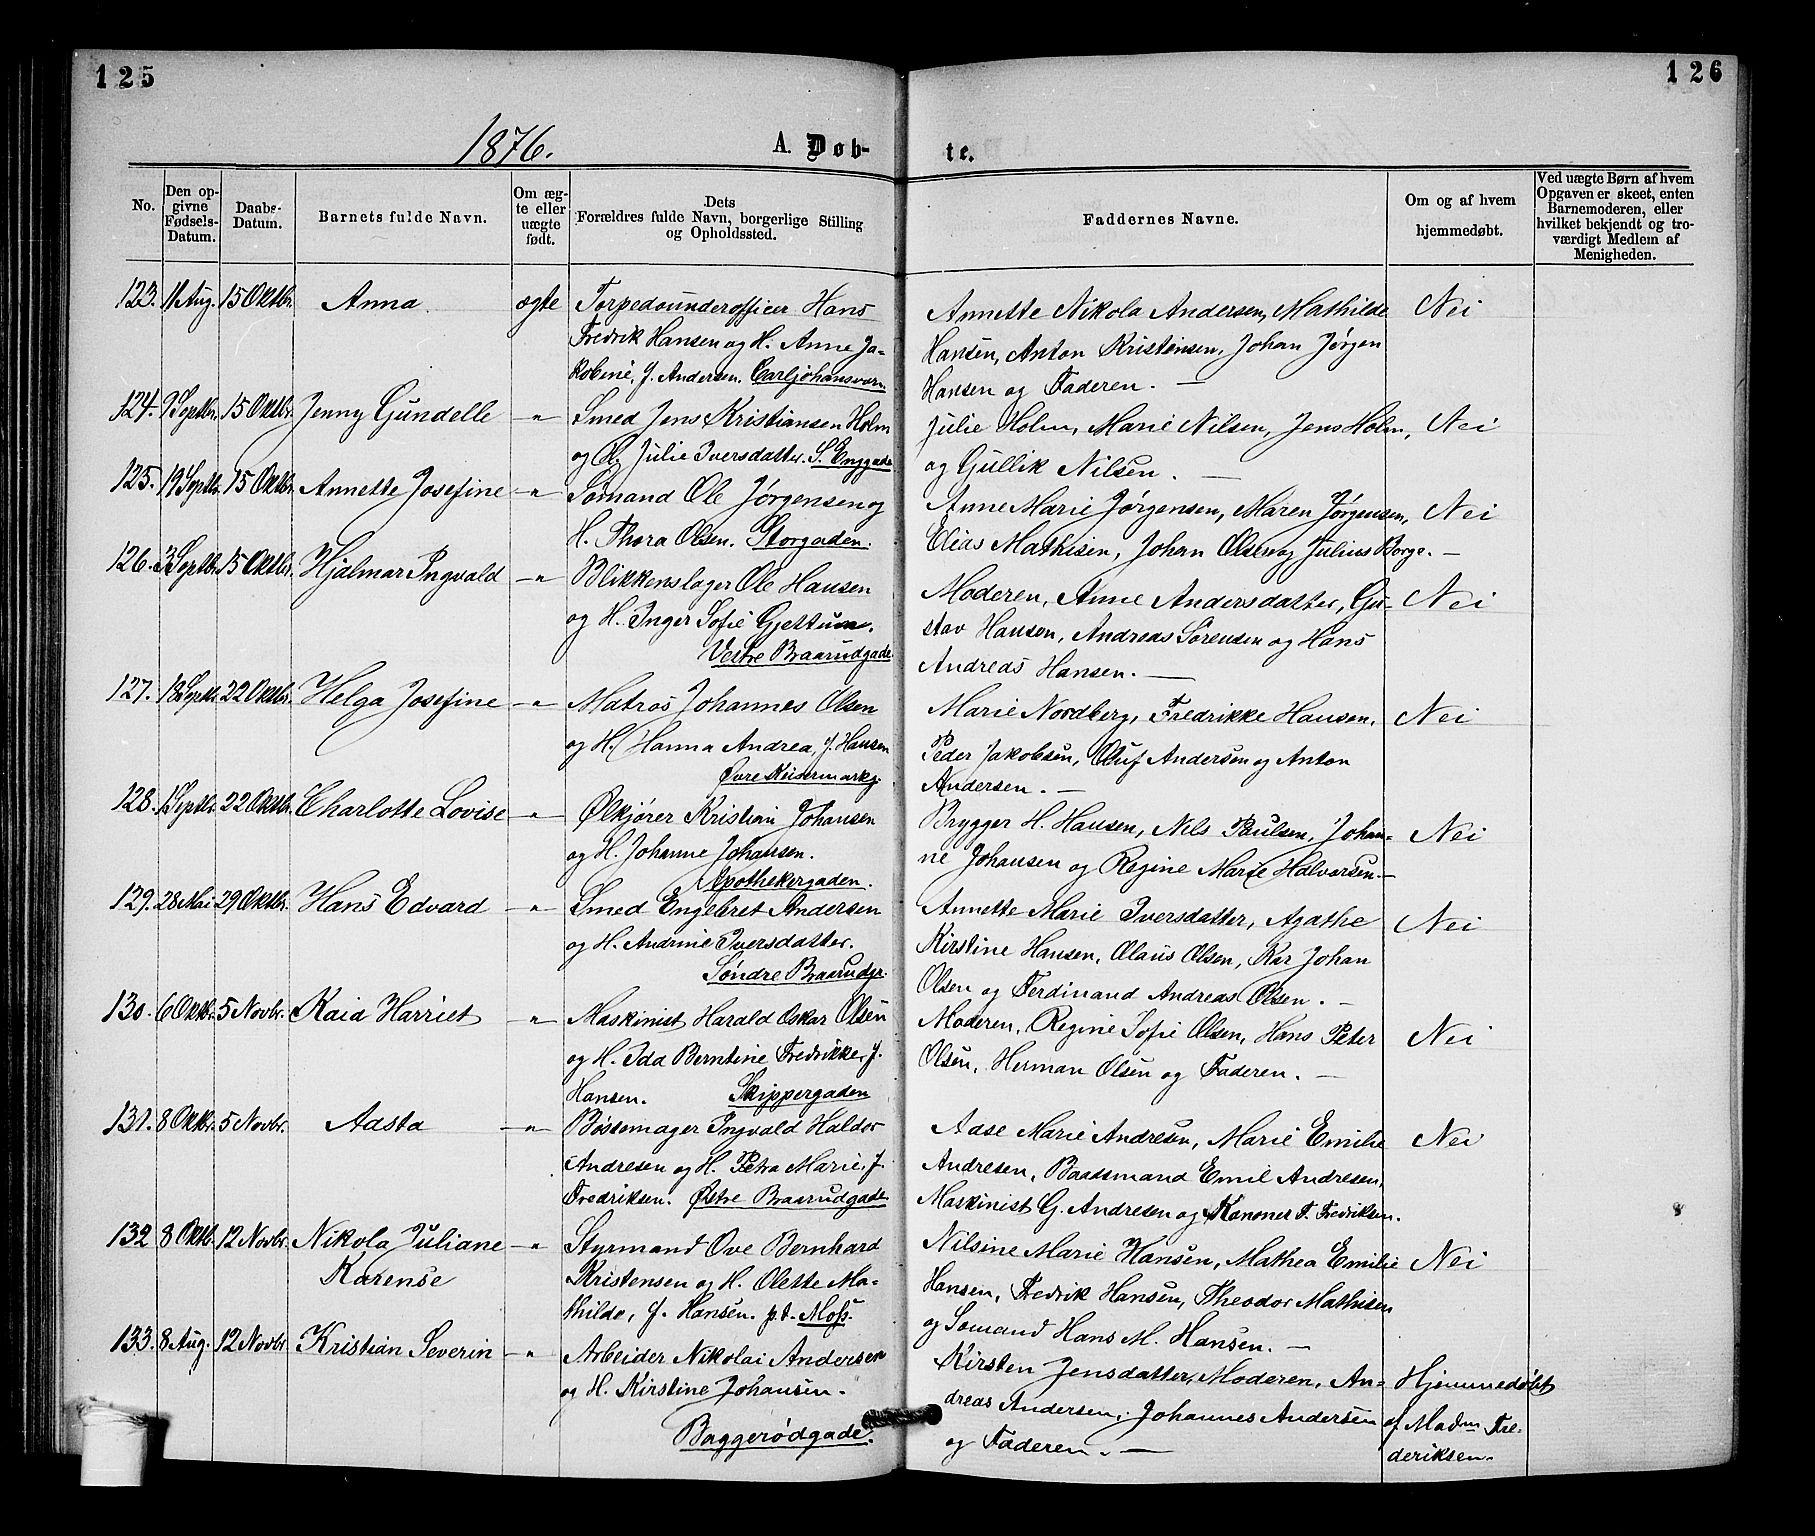 125
126
1876.
A. Døb-
te.
No.
Den op-
givne
Fødsels-
Datum.
Daabs-
Datum.
Barnets fulde Navn.
Om æg-
te eller
uægte
født.
Dets
Forældres fulde Navn, borgerlige Stilling
og Opholdssted.
Faddernes Navne.
Om og af hvem
hjemmedøbt.
Ved uægte Børn af hvem
Opgaven er skeet, enten
Barnemoderen, eller
hvilket bekjendt og tro-
værdigt Medlem af
Menigheden.
123. 11 Aug. 15 Oktbr. Anna. ægte Torpedounderofficer Hans
Fredrik Hansen og H. Anne Ja-
kobine, f. Andersen. Carljohansværn
Annette Nikola Andersen, Mathilde
Hansen, Anton Kristensen, Johan Jørgen
Hansen og Faderen. —
Nei
124. 9 Septbr. 15 Oktbr. Jenny Gundelle —"— Smed Jens Kristiansen Holm
og H. Julie Iversdatter. S. Enggade
Julie Holm, Marie Nilsen, Jens Holm,
og Gullik Nilsen. —
Nei
125. 19 Septbr. 15 Oktbr. Annette Josefine —"— Sømand Ole Jørgensen og
H. Thora Olsen. Storgaden.
Anne Marie Jørgensen, Maren Jørgensen,
Elias Mathisen, Johan Olsen og Julius Borge. —
Nei
126. 3 Septbr. 15 Oktbr. Hjalmar Ingvald —"— Blikkenslager Ole Hansen
og H. Inger Sofie Gjettum.
Vestre Braarudgade
Moderen, Anne Andersdatter, Gu-
stav Hansen, Andreas Sørensen og Hans
Andreas Hansen. —
Nei
127. 18 Septbr. 22 Oktbr. Helga Josefine —"— Matros Johannes Olsen
og H. Hanna Andrea, f. Hansen
Øvre Keisermarkg.
Marie Nordberg, Fredrikke Hansen,
Peder Jakobsen, Oluf Andersen og Anton
Andersen. —
Nei
128. Septbr. 22 Oktbr. Charlotte Lovise —"— Ølkjører Kristian Johansen
og H. Johanne Johansen.
Apothekergaden.
Brygger H. Hansen, Nils Paulsen, Johan-
ne Johansen og Regine Marie Halvorsen. —
Nei
129. 28 Mai 29 Oktbr. Hans Edvard —"— Smed Engebret Andersen
og H. Andrine Iversdatter.
Søndre Braarudgr.
Annette Marie Iversdatter, Agathe
Kirstine Hansen, Olaus Olsen, Kar Johan
Olsen og Ferdinand Andreas Olsen. —
Nei
130. 6 Oktbr. 5 Novbr. Kaia Harriet —"— Maskinist Harald Oskar Olsen
og H. Ida Berntine Fredrikke, f.
Hansen. Skippergaden
Moderen, Regine Sofie Olsen, Hans Peter
Olsen, Herman Olsen og Faderen. —
Nei
131. 8 Oktbr. 5 Novbr. Aasta —"— Bøssemager Ingvald Haldor
Andresen og H. Petra Marie, f.
Fredriksen. Østre Braarudgade
Aase Marie Andresen, Marie Emilie
Andresen, Baadsmand Emil Andresen,
Maskinist G. Andresen og Kanoner F. Fredriksen.
Nei
132 8 Oktb. 12 Novbr. Nikola Juliane —"— Styrmand Ove Bernhard
Karense
Kristensen og H. Olette Ma-
thilde, f. Hansen. p.t. Moss.
Nilsine Marie Hansen, Mathea Emilie
Hansen, Fredrik Hansen, Theodor Mathisen
og Sømand Hans M. Hansen. —
Nei
133. 8 Aug. 12 Novbr. Kristian Severin —"— Arbeider Nikolai Andersen
og H. Kirstine Johansen.
Baggerødgade.
Kirsten Jensdatter, Moderen, An-
dreas Andersen, Johannes Andersen
og Faderen. —
Hjemmedøbt
af Madm Fre-
deriksen.